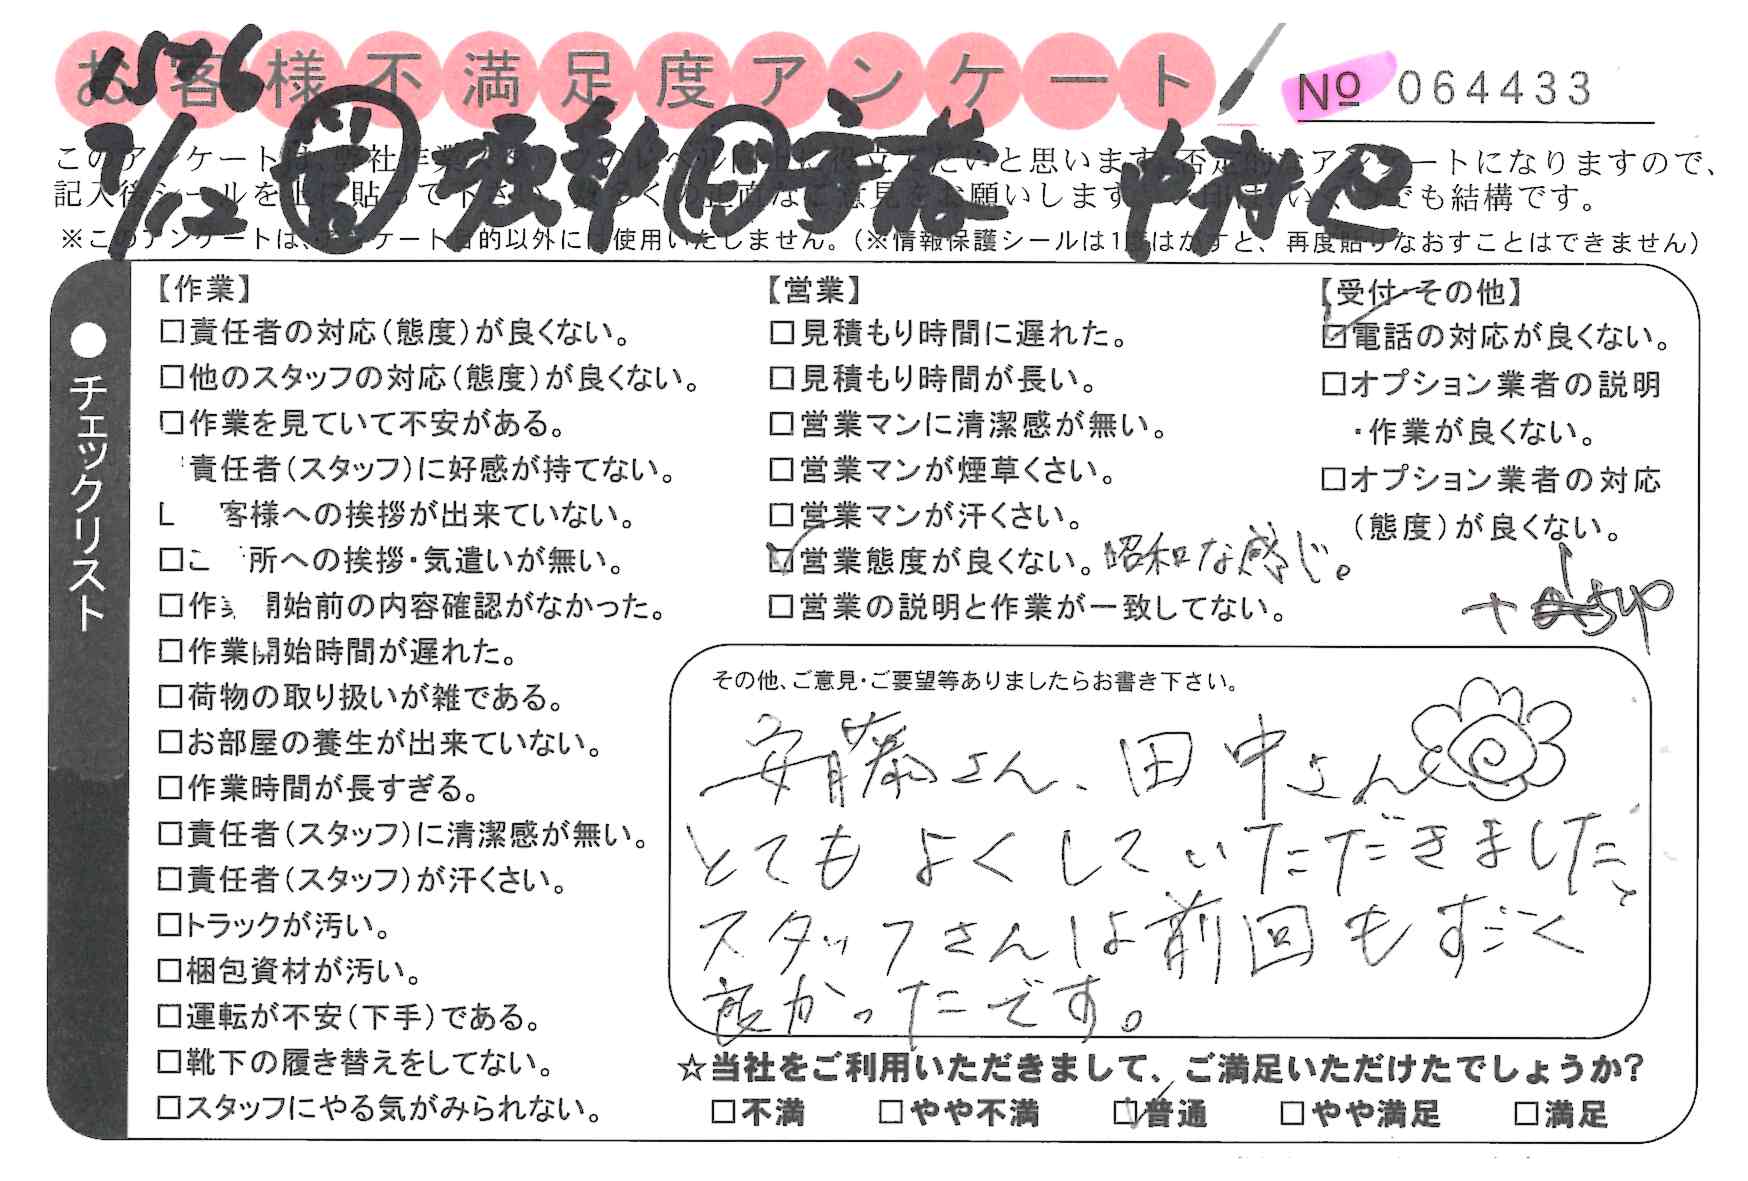 お客様不満足度アンケート
1576
№ 064433
7/12
このアンケートは、弊社作業スタッフのレベル向上に役立てたいと思います。否定的なアンケートになりますので、
記入後シールを上に貼って下さい。
※このアンケートは、アンケート目的以外には使用いたしません。(※情報保護シールは1度はがすと、再度貼りなおすことはできません)
●チェックリスト
【作業】
□責任者の対応(態度)が良くない。
□他のスタッフの対応(態度)が良くない。
□作業を見ていて不安がある。
責任者(スタッフ)に好感が持てない。
客様への挨拶が出来ていない。
□ご 所への挨拶・気遣いが無い。
□作業開始前の内容確認がなかった。
□作業開始時間が遅れた。
□荷物の取り扱いが雑である。
□お部屋の養生が出来ていない。
□作業時間が長すぎる。
□責任者(スタッフ)に清潔感が無い。
□責任者(スタッフ)が汗くさい。
□トラックが汚い。
□梱包資材が汚い。
□運転が不安(下手)である。
□靴下の履き替えをしてない。
□スタッフにやる気がみられない。
【営業】
□見積もり時間に遅れた。
□見積もり時間が長い。
□営業マンに清潔感が無い。
□営業マンが煙草くさい。
□営業マンが汗くさい。
☑営業態度が良くない。昭和な感じ。
□営業の説明と作業が一致してない。
【受付・その他】
☑電話の対応が良くない。
□オプション業者の説明
・作業が良くない。
□オプション業者の対応
(態度)が良くない。
その他、ご意見・ご要望等ありましたらお書き下さい。
安藤さん、田中さん
とてもよくしていただきました、
スタッフさんは前回もすごく
良かったです。
☆当社をご利用いただきまして、ご満足いただけたでしょうか?
□不満 □やや不満 ☑普通 □やや満足 □満足